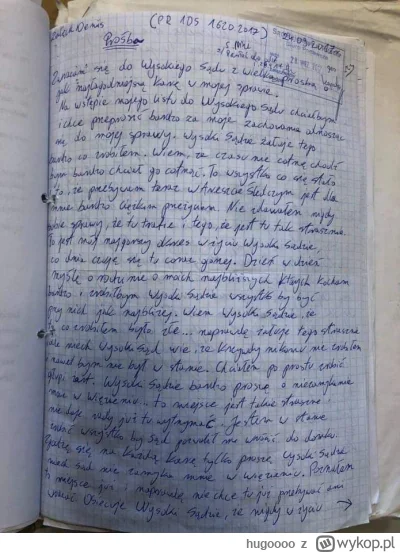 Denis (PR 1DS 1620.2017)
Prośba
Zwracam się do Wysokiego Sądu z wielką prośbą o
jak najłagodniejszą karę w mojej sprawie.
Na wstępie mojego listu do Wysokiego Sądu chciałbym
i chcę przeprosić bardzo za moje zachowanie odnosząc
się do mojej sprawy. Wysoki Sądzie żałuję tego
bardzo co zrobiłem. Wiem, że czasu nie cofnę choć
bym bardzo chciał go cofnąć. To wszystko co się stało
to, że przebywam teraz w Areszcie Śledczym jest dla
mnie bardzo ciężkim przeżyciem. Nie zdawałem nigdy
sobie sprawy, że tu trafię i tego, że jest tu tak strasznie.
To jest mój najgorszy okres w życiu Wysoki Sądzie,
co dnia czuję się tu coraz gorzej. Dzień w dzień
myślę o rodzinie o moich najbliższych których kocham
bardzo i zrobiłbym Wysoki Sądzie wszystko by być
przy nich jak najbliżej. Wiem Wysoki Sądzie, że
to co zrobiłem było złe... naprawdę żałuję tego strasznie
ale niech Wysoki Sąd wie, że krzywdy nikomu nie zrobiłem
i nawet bym nie był w stanie. Chciałem po prostu zrobić
głupi żart. Wysoki Sądzie bardzo proszę o niezamykanie
mnie w więzieniu.. to miejsce jest takie straszne
nie daję rady już tu wytrzymać. Jestem w stanie
zrobić wszystko by sąd pozwolił mi wrócić do domu.
się, na każdą karę tylko proszę Wysoki Sądzie
niech sąd nie zamyka mnie w więzieniu. Poznałem
to miejsce już i naprawdę nie chcę tu już przebywać ani
wracać Obiecuję Wysoki Sądzie, że nigdy w życiu →
hugoooo z wykop.pl